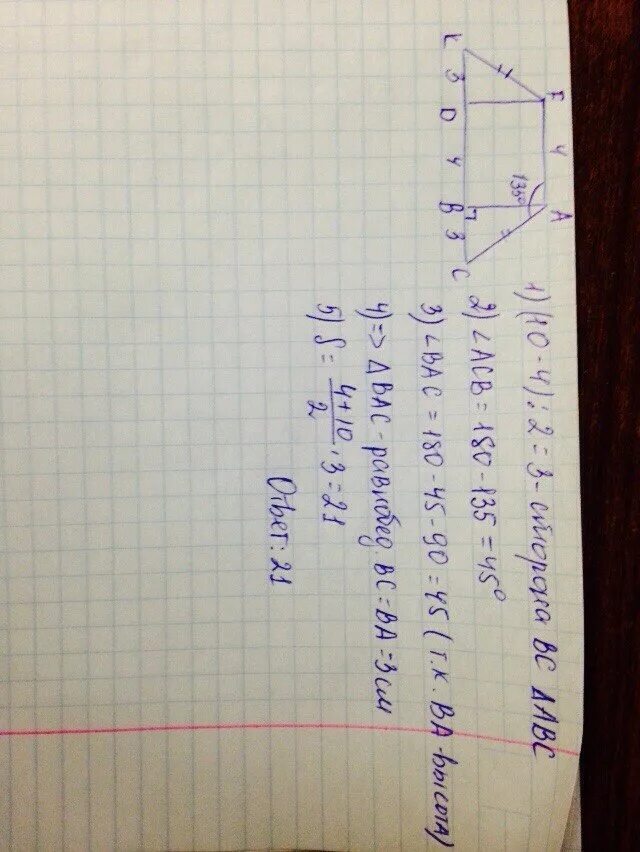 F 4 A
135°
K 3 D 4 B 3 C
1) (10-4):2=3-сторона BC ΔABC
2) ∠ACB=180-135=45°
3) ∠BAC=180-45-90=45 (т.к. BA-высота)
4) => ΔBAC-равнобед, BC=BA=3см
5) S= 4+10/2 · 3=21
Ответ: 21